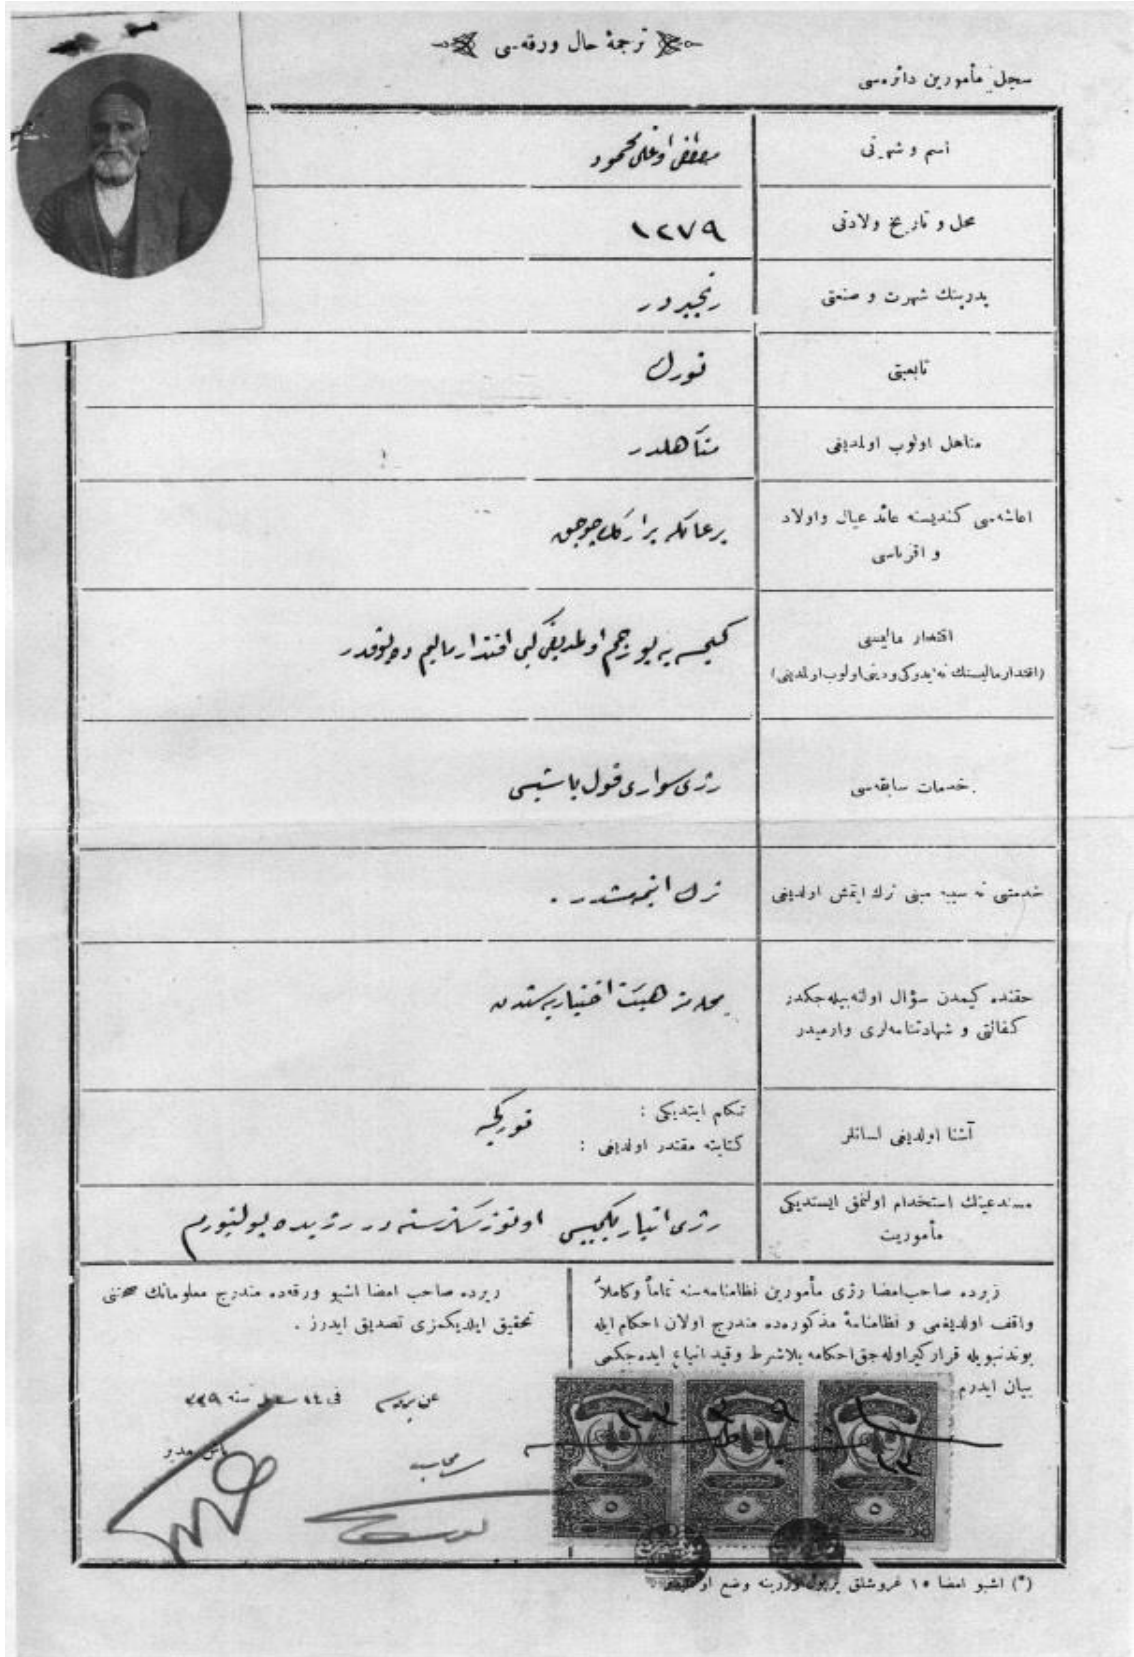 ترجمۀ حال ورقه‌سی
سجل مأمورین دائره‌سی
اسم و شهرتی
مصطفی اوغلی محمود
محل و تاریخ ولادتی
١٢٧٩
پدرینك شهرت و صنعتی
رنجبردر
تابعیتی
تورك
متاهل اولوب اولمدیغی
متأهلدر
اعاشه‌سی كندیسنه عائد عیال واولاد
و اقرباسی
بر عائله بر اركك چوجق
اقتدار مالیسی
(اقتدار مالیسنك نه‌یدوكی و دینی اولوب اولمدیغی)
كیمسه‌یه بورجم اولمدیغی كبی اقتدار مالیم ده یوقدر
خدمات سابقه‌سی
رژی سواری قول باشیسی
خدمتی نه سببه مبنی ترك ایتمش اولدیغی
ترك ایتمه‌مشدر .
حقنده كیمدن سؤال اولنه‌بیله‌جكدر
كفالتی و شهادتنامه‌لری وارمیدر
محله‌مز هیئت اختیاریه‌سندن
آشنا اولدیغی لسانلر
تكلم ایتدیكی :
توركجه
كتابته مقتدر اولدیغی :
مستدعینك استخدام اولنمق ایستدیكی
مأموریت
رژی انبار بكجیسی اوتوز سكز سنه‌در رژیده بولنیورم
زیرده صاحب‌امضا رژی مأمورین نظامنامه‌سنه تماماً وكاملاً
واقف اولدیغمی و نظامنامۀ مذكورده مندرج اولان احكام ایله
بوندنبویله قرارگیر اوله‌جق احكامه بلاشرط وقید اتباع ایده‌جكمی
بیان ایدرم
زیرده صاحب امضا اشبو ورقه‌ده مندرج معلوماتك صحتنی
تحقیق ایلدیكمزی تصدیق ایدرز .
فی ١٤ سنه ٣٣٩
باش مدیر
محاسب
٥
٥
٥
(*) اشبو امضا ١٥ غروشلق پول اوزرینه وضع